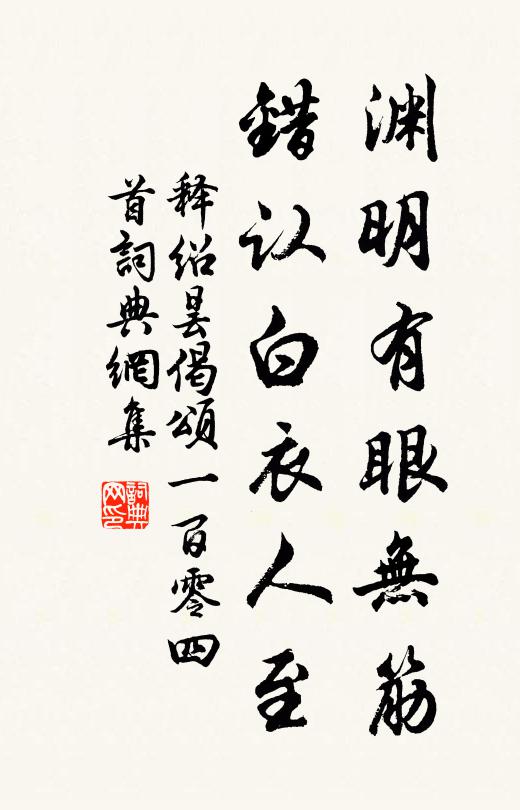 渊明有眼無筋
錯认白衣人至
释紹昙偈頌一百零四
首詞典網集
詞典网印